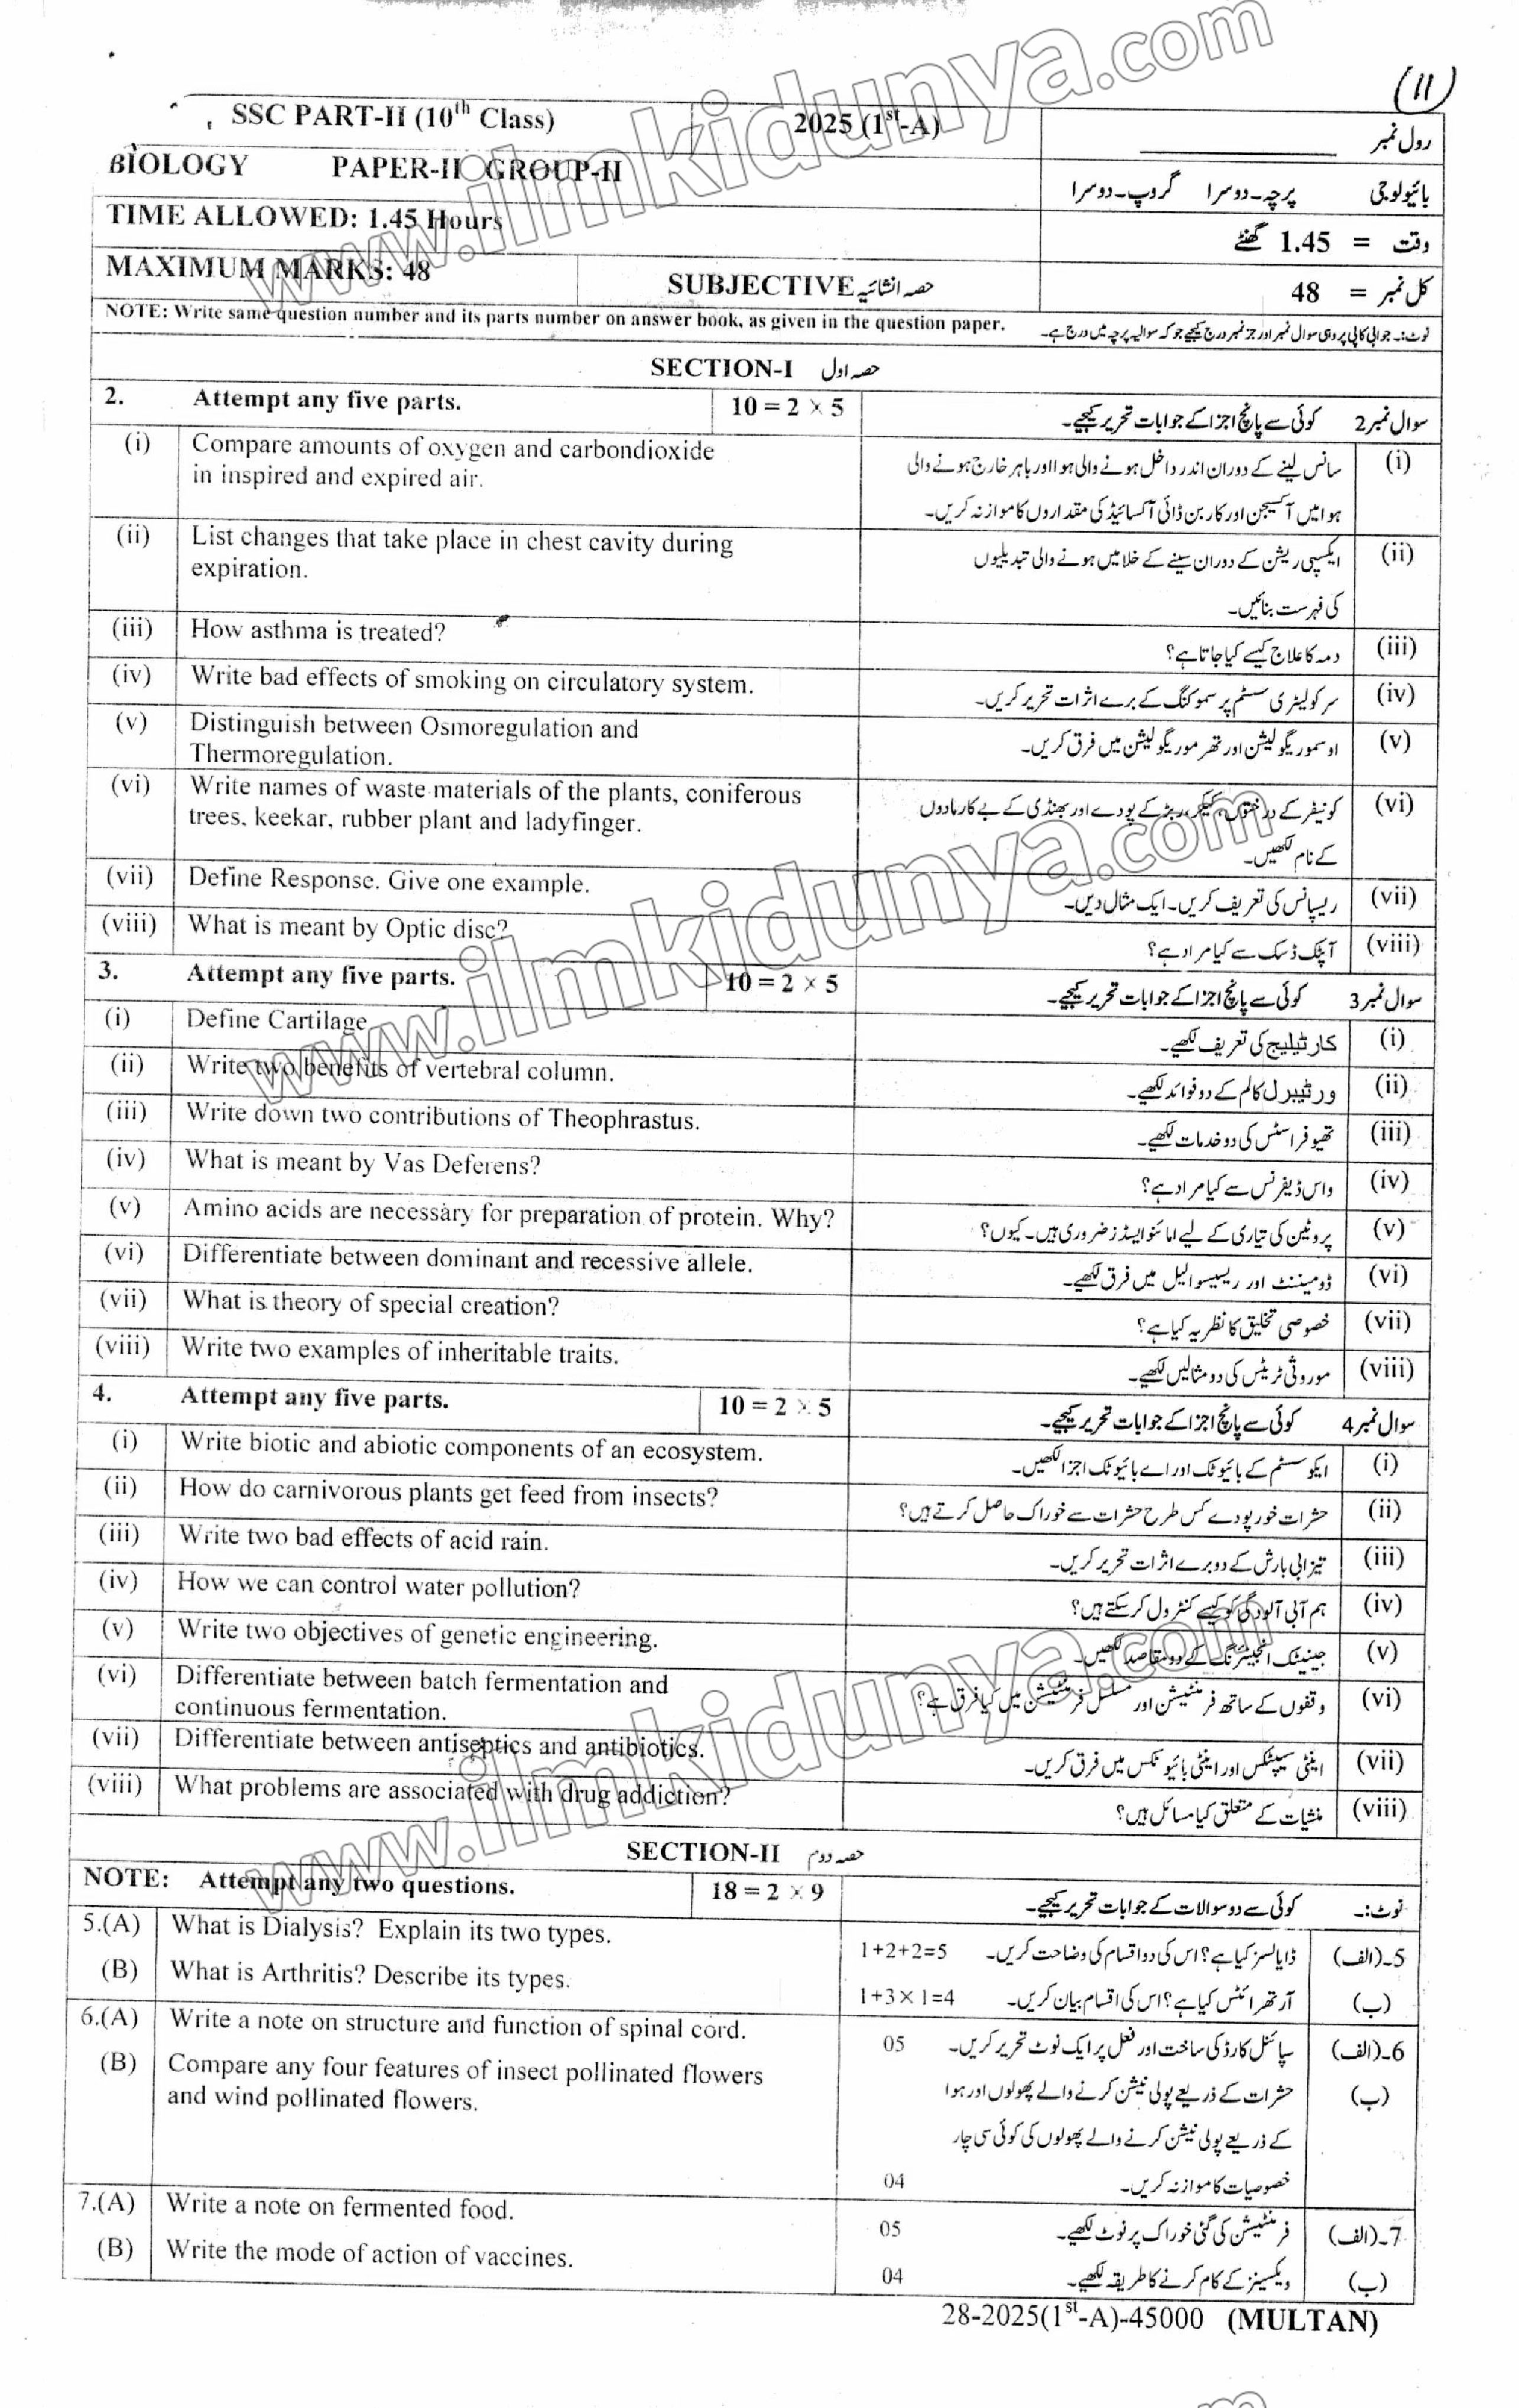 www.ilmkidunya.com
(11)
SSC PART-II (10th Class)
2025 (1st-A)
رول نمبر ____________
BIOLOGY PAPER-II GROUP-II
بائیولوجی پرچہ۔دوسرا گروپ۔دوسرا
TIME ALLOWED: 1.45 Hours
وقت = 1.45 گھنٹے
MAXIMUM MARKS: 48
SUBJECTIVE حصہ انشائیہ
کل نمبر = 48
NOTE: Write same question number and its parts number on answer book, as given in the question paper.
نوٹ:۔ جوابی کاپی پر وہی سوال نمبر اور جز نمبر درج کیجیے جو کہ سوالیہ پرچہ میں درج ہے۔
SECTION-I حصہ اول
2. Attempt any five parts.
10 = 2 × 5
سوال نمبر 2 کوئی سے پانچ اجزا کے جوابات تحریر کیجیے۔
(i) Compare amounts of oxygen and carbondioxide
in inspired and expired air.
سانس لینے کے دوران اندر داخل ہونے والی ہوا اور باہر خارج ہونے والی (i)
ہوا میں آکسیجن اور کاربن ڈائی آکسائیڈ کی مقداروں کا موازنہ کریں۔
(ii) List changes that take place in chest cavity during
expiration.
ایکسپی ریشن کے دوران سینے کے خلا میں ہونے والی تبدیلیوں (ii)
کی فہرست بنائیں۔
(iii) How asthma is treated?
دمہ کا علاج کیسے کیا جاتا ہے؟ (iii)
(iv) Write bad effects of smoking on circulatory system.
سرکولیٹری سسٹم پر سموکنگ کے برے اثرات تحریر کریں۔ (iv)
(v) Distinguish between Osmoregulation and
Thermoregulation.
اوسموریگولیشن اور تھرموریگولیشن میں فرق کریں۔ (v)
(vi) Write names of waste materials of the plants, coniferous
trees, keekar, rubber plant and ladyfinger.
کونیفر کے درختوں، کیکر، ربڑ کے پودے اور بھنڈی کے بے کار مادوں (vi)
کے نام لکھیں۔
(vii) Define Response. Give one example.
ریسپانس کی تعریف کریں۔ ایک مثال دیں۔ (vii)
(viii) What is meant by Optic disc?
آپٹک ڈسک سے کیا مراد ہے؟ (viii)
3. Attempt any five parts.
10 = 2 × 5
سوال نمبر 3 کوئی سے پانچ اجزا کے جوابات تحریر کیجیے۔
(i) Define Cartilage.
کارٹیلیج کی تعریف لکھیے۔ (i)
(ii) Write two benefits of vertebral column.
ورٹیبرل کالم کے دو فوائد لکھیے۔ (ii)
(iii) Write down two contributions of Theophrastus.
تھیوفراسٹس کی دو خدمات لکھیے۔ (iii)
(iv) What is meant by Vas Deferens?
واس ڈیفرنس سے کیا مراد ہے؟ (iv)
(v) Amino acids are necessary for preparation of protein. Why?
پروٹین کی تیاری کے لیے امائنو ایسڈز ضروری ہیں۔ کیوں؟ (v)
(vi) Differentiate between dominant and recessive allele.
ڈومیننٹ اور ریسیسو الیل میں فرق لکھیے۔ (vi)
(vii) What is theory of special creation?
خصوصی تخلیق کا نظریہ کیا ہے؟ (vii)
(viii) Write two examples of inheritable traits.
موروثی ٹریٹس کی دو مثالیں لکھیے۔ (viii)
4. Attempt any five parts.
10 = 2 × 5
سوال نمبر 4 کوئی سے پانچ اجزا کے جوابات تحریر کیجیے۔
(i) Write biotic and abiotic components of an ecosystem.
ایکو سسٹم کے بائیوٹک اور اے بائیوٹک اجزا لکھیں۔ (i)
(ii) How do carnivorous plants get feed from insects?
حشرات خور پودے کس طرح حشرات سے خوراک حاصل کرتے ہیں؟ (ii)
(iii) Write two bad effects of acid rain.
تیزابی بارش کے دو برے اثرات تحریر کریں۔ (iii)
(iv) How we can control water pollution?
ہم آبی آلودگی کو کیسے کنٹرول کر سکتے ہیں؟ (iv)
(v) Write two objectives of genetic engineering.
جینیٹک انجینئرنگ کے دو مقاصد لکھیں۔ (v)
(vi) Differentiate between batch fermentation and
continuous fermentation.
وقفوں کے ساتھ فرمنٹیشن اور مسلسل فرمنٹیشن میں کیا فرق ہے؟ (vi)
(vii) Differentiate between antiseptics and antibiotics.
اینٹی سیپٹکس اور اینٹی بائیوٹکس میں فرق کریں۔ (vii)
(viii) What problems are associated with drug addiction?
منشیات کے متعلق کیا مسائل ہیں؟ (viii)
SECTION-II حصہ دوم
NOTE: Attempt any two questions.
18 = 2 × 9
نوٹ:۔ کوئی سے دو سوالات کے جوابات تحریر کیجیے۔
5.(A) What is Dialysis? Explain its two types.
1+2+2=5
5۔(الف) ڈایالسز کیا ہے؟ اس کی دو اقسام کی وضاحت کریں۔
(B) What is Arthritis? Describe its types.
1+3×1=4
(ب) آرتھرائٹس کیا ہے؟ اس کی اقسام بیان کریں۔
6.(A) Write a note on structure and function of spinal cord.
05
6۔(الف) سپائنل کارڈ کی ساخت اور فعل پر ایک نوٹ تحریر کریں۔
(B) Compare any four features of insect pollinated flowers
and wind pollinated flowers.
(ب) حشرات کے ذریعے پولی نیشن کرنے والے پھولوں اور ہوا
کے ذریعے پولی نیشن کرنے والے پھولوں کی کوئی سی چار
خصوصیات کا موازنہ کریں۔
04
7.(A) Write a note on fermented food.
05
7۔(الف) فرمنٹیشن کی گئی خوراک پر نوٹ لکھیے۔
(B) Write the mode of action of vaccines.
04
(ب) ویکسینز کے کام کرنے کا طریقہ لکھیے۔
28-2025(1st-A)-45000 (MULTAN)
www.ilmkidunya.com
www.ilmkidunya.com